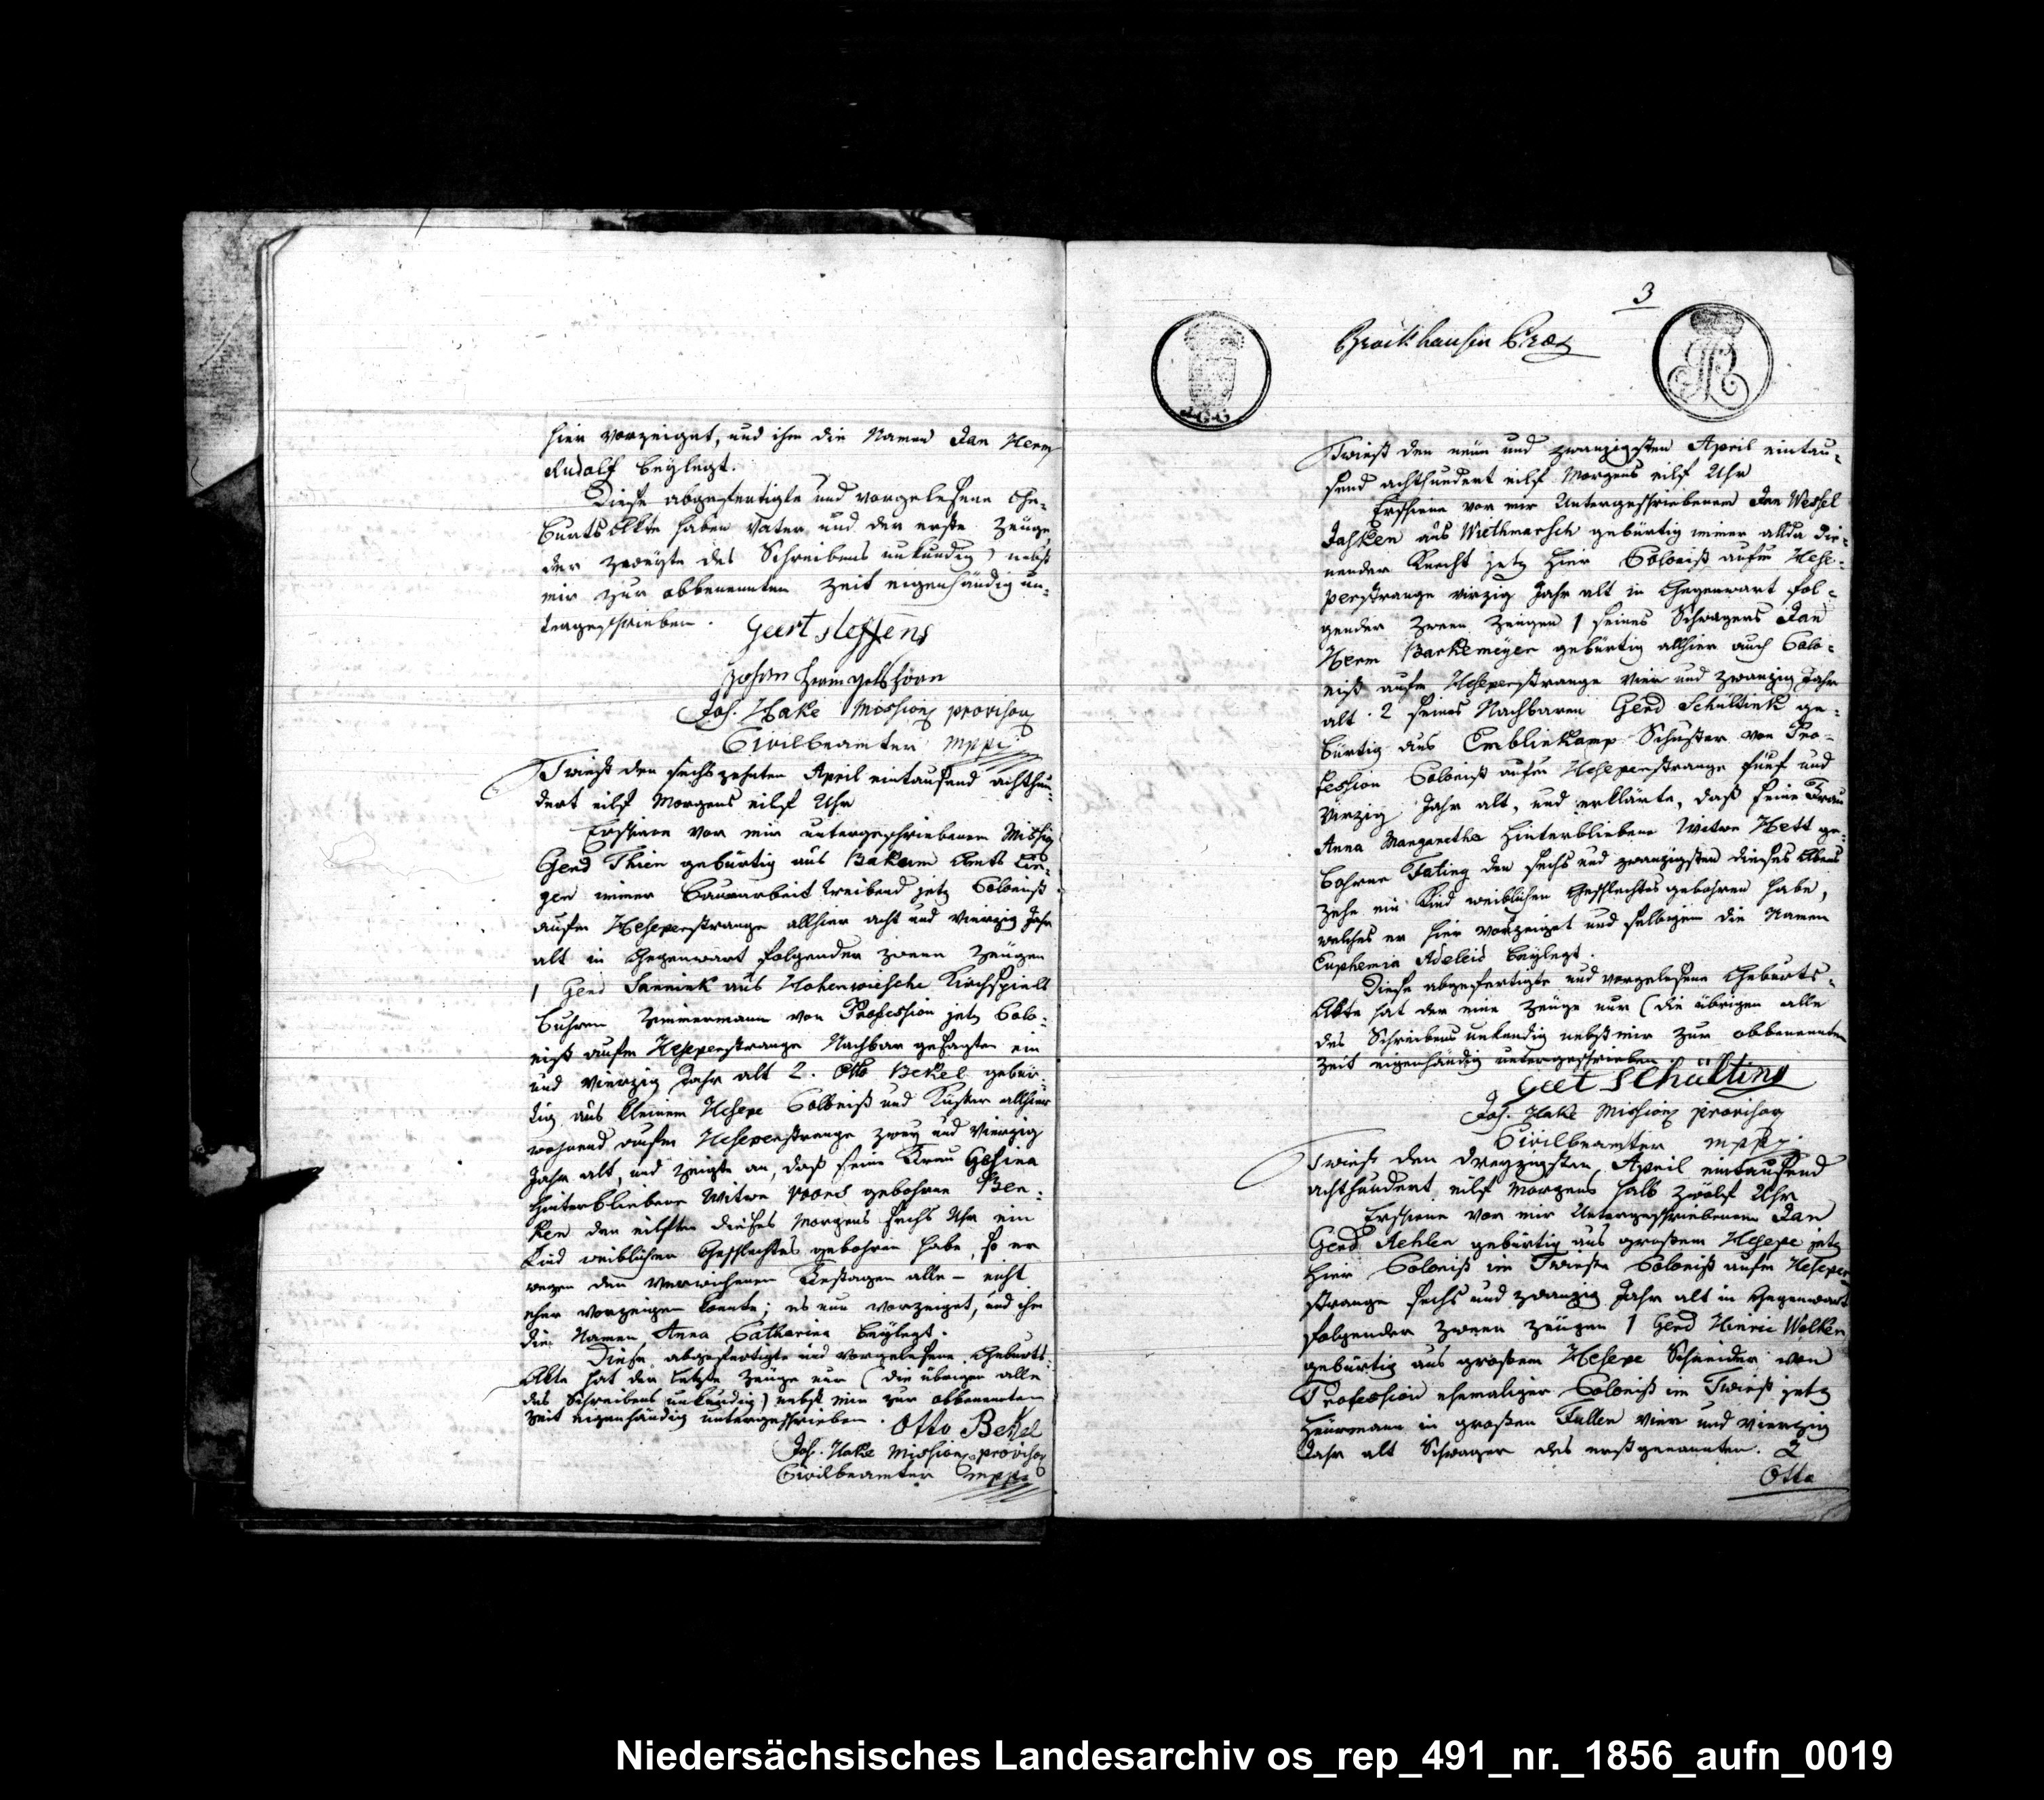 hier vorzeiget, und ihm die Namen Jan Herm
Rudolf beylegt.
Diese abgefertigte und vorgelesene Ge-
burts Akte haben Vater und der erste Zeuge,
der zweyte des Schreibens unkundig, nebst
mir zur obbenennten Zeit eigenhändig un-
tergeschrieben.
Geert Steffens
Johan Herm
Joh. Hake Mission provisor
Civilbeamter mppr
Twist den sechszehnten April eintausend achthun-
dert eilf Morgens eilf Uhr
Erschiene vor mir untergeschriebenem
Gerd Thien gebürtig aus Bakum Amts Lin-
gen immer Bauarbeit treibend jetz Colonist
aufm Heseperstrange allhier acht und vierzig Jahr
alt in Gegenwart folgender zween Zeugen
1 Gerd Sannink aus Hohenwiesche Kirchspiels
Zimmermann von Profession jetz Colo-
nist aufm Hesperstrange Nachbar gesagten ein
und vierzig Jahr alt 2. Otto Bekel gebür-
tig aus kleinem Hesepe Colonist und Küster allhier
wohnend aufm Heseperstrange zwey und vierzig
Jahr alt, und zeigte an, daß seine Frau Gesina
hinterbliebene Witwe gebohrne Ben-
ken den eilften dieses Morgens sechs Uhr ein
Kind weiblichen Geschlechtes gebohren habe, so er
wegen den verwichenen Festagen alle - nicht
eher vorzeigen konnte; es nun vorzeiget, und ihm
die Namen Anna Catharina beylegt.
Diese abgefertigte und vorgelesene Geburts-
Akte hat der letzte Zeuge nur (die übrigen alle
des Schreibens unkundig) nebst mir zur obbenennten
Zeit eigenhändig untergeschrieben.
Otto Bekel
Joh. Hake Mission provisor
Civilbeamter mppr
3
Twist den neun und zwanzigsten April eintau-
send achthundert eilf Morgens eilf Uhr
Erschiene vor mir Untergeschriebenem Jan Wessel
Jasken aus Wiethmarsch gebürtig immer allda die-
nender Knecht jetz hier Colonist aufm Hese-
perstrange virzig Jahr alt in Gegenwart fol-
gender zween Zeugen 1 seines Schwagers Jan
Herm Barkemeyer gebürtig allhier auch Colo-
nist aufm Heseperstrange vier und zwanzig Jahr
alt. 2 seines Nachbaren Gerd Schültink ge-
bürtig aus Emblinkamp Schuster von Pro-
fession Colonist aufm Heseperstrange fünf und
virzig Jahr alt, und erklärte, daß seine Frau
Anna Margaretha hinterbliebene Witwe Hett ge-
bohrne Fating den sechs und zwanzigsten dieses Abens
zehn ein Kind weiblichen Geschlechtes gebohren habe,
welches er hier vorzeiget und selbigem die Namen
Euphemia Adeleid beylegt.
Diese abgefertigte und vorgelesene Geburts-
Akte hat der eine Zeuge nur (die übrigen alle
des Schreibens unkundig nebst mir zur obbenennten
Zeit eigenhändig untergeschrieben.
Geet Schülting
Joh. Hake Mission provisor
Civilbeamter mppr.
Twist den dreyzigsten April eintausend
achthundert eilf Morgens halb zwölf Uhr
Erschiene vor mir Untergeschriebenem Jan
Gerd Aehlen gebürtig aus großem Hesepe jetz
hier Colonist im Twist Colonist aufm Heseper
strange sechs und zwanzig Jahr alt in Gegenwart
folgender zween Zeugen 1 Gerd Hinric Wolken
gebürtig aus großem Hesepe Schneider von
Profession ehemaliger Colonist im Twist jetz
Heuermann in großen Fullen vier und vierzig
Jahr alt Schwager des erstgenannten. 2
Otto
Niedersächsisches Landesarchiv os_rep_491_nr._1856_aufn_0019